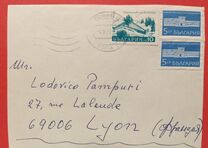 БЪЛГАРИЯ 10
5 СТ
БЪЛГАРИЯ
5 СТ
БЪЛГАРИЯ
Mr.
Lodovico Pampuri
27, rue Lalande
69006 Lyon (Франция)